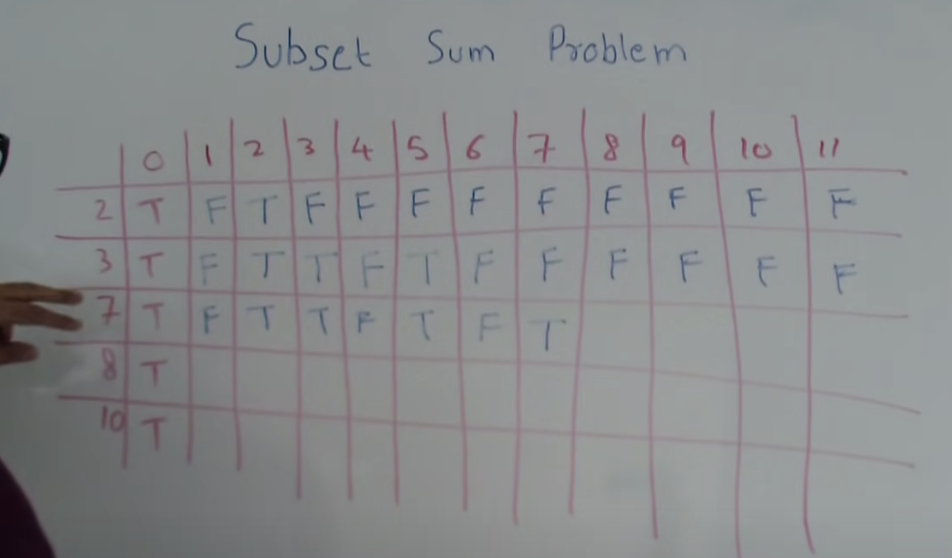 Subset Sum Problem
0 1 2 3 4 5 6 7 8 9 10 11
2 T F T F F F F F F F F F
3 T F T T F T F F F F F F
7 T F T T F T F T
8 T
10 T